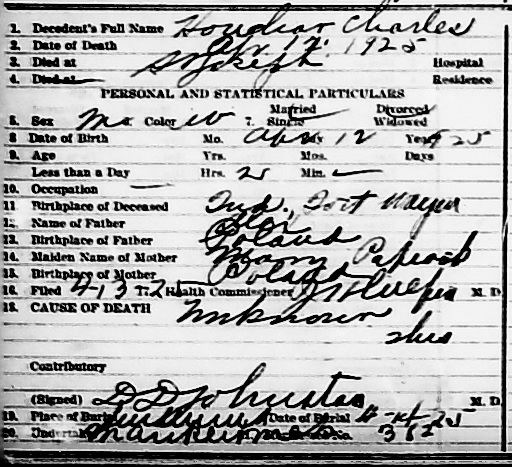 1. Decedent's Full Name Houdiar Charles
2. Date of Death Apr. 12. 1925
3. Died at St Joseph Hospital
4. Died at Residence
PERSONAL AND STATISTICAL PARTICULARS
5. Sex Ma Color W 7. Married Single Divorced Widowed
8 Date of Birth Mo. Apr Day 12 Year 925
9. Age Yrs. Mos. Days
Less than a Day Hrs. 2 Min.
10. Occupation
11 Birthplace of Deceased Ind., Fort Wayne
12. Name of Father
13. Birthplace of Father Poland
14. Maiden Name of Mother Mary
15. Birthplace of Mother Poland
16. Filed 4 13 Health Commissioner M. D.
18. CAUSE OF DEATH Unknown
Contributory
(Signed) D D Johnston M. D.
19. Place of Burial Date of Burial 25
20. Undertaker No.